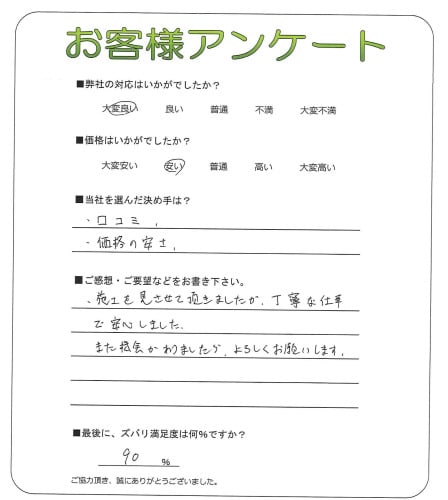 お客様アンケート
■弊社の対応はいかがでしたか?
大変良い 良い 普通 不満 大変不満
■価格はいかがでしたか?
大変安い 安い 普通 高い 大変高い
■当社を選んだ決め手は?
・口コミ,
・価格の安さ,
■ご感想・ご要望などをお書き下さい。
・施工を見させて頂きましたが、丁寧な仕事
で安心しました.
また機会がありましたら、よろしくお願いします.
■最後に、ズバリ満足度は何%ですか?
90 %
ご協力頂き、誠にありがとうございました。